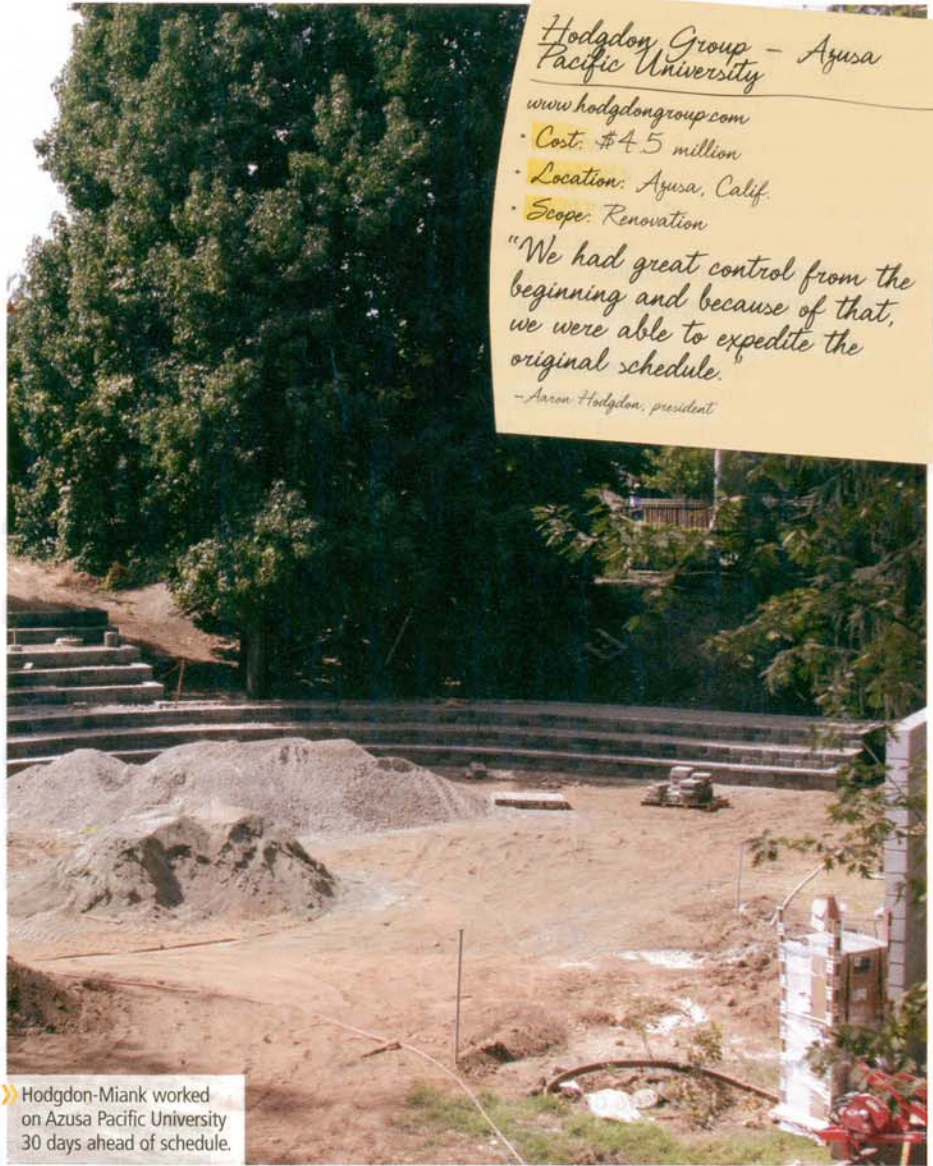 Hodgdon Group – Azusa
Pacific University
www.hodgdongroup.com
• Cost: $4.5 million
• Location: Azusa, Calif.
• Scope: Renovation
"We had great control from the
beginning and because of that,
we were able to expedite the
original schedule."
– Aaron Hodgdon, president
» Hodgdon-Miank worked
on Azusa Pacific University
30 days ahead of schedule.